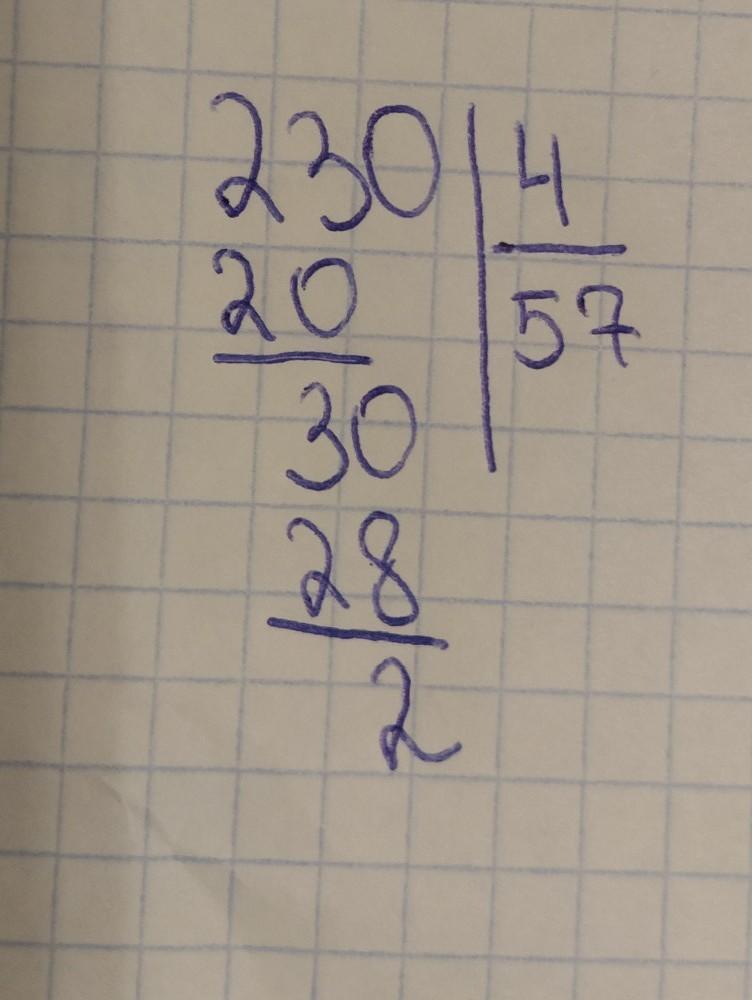 230 4
20 57
30
28
2